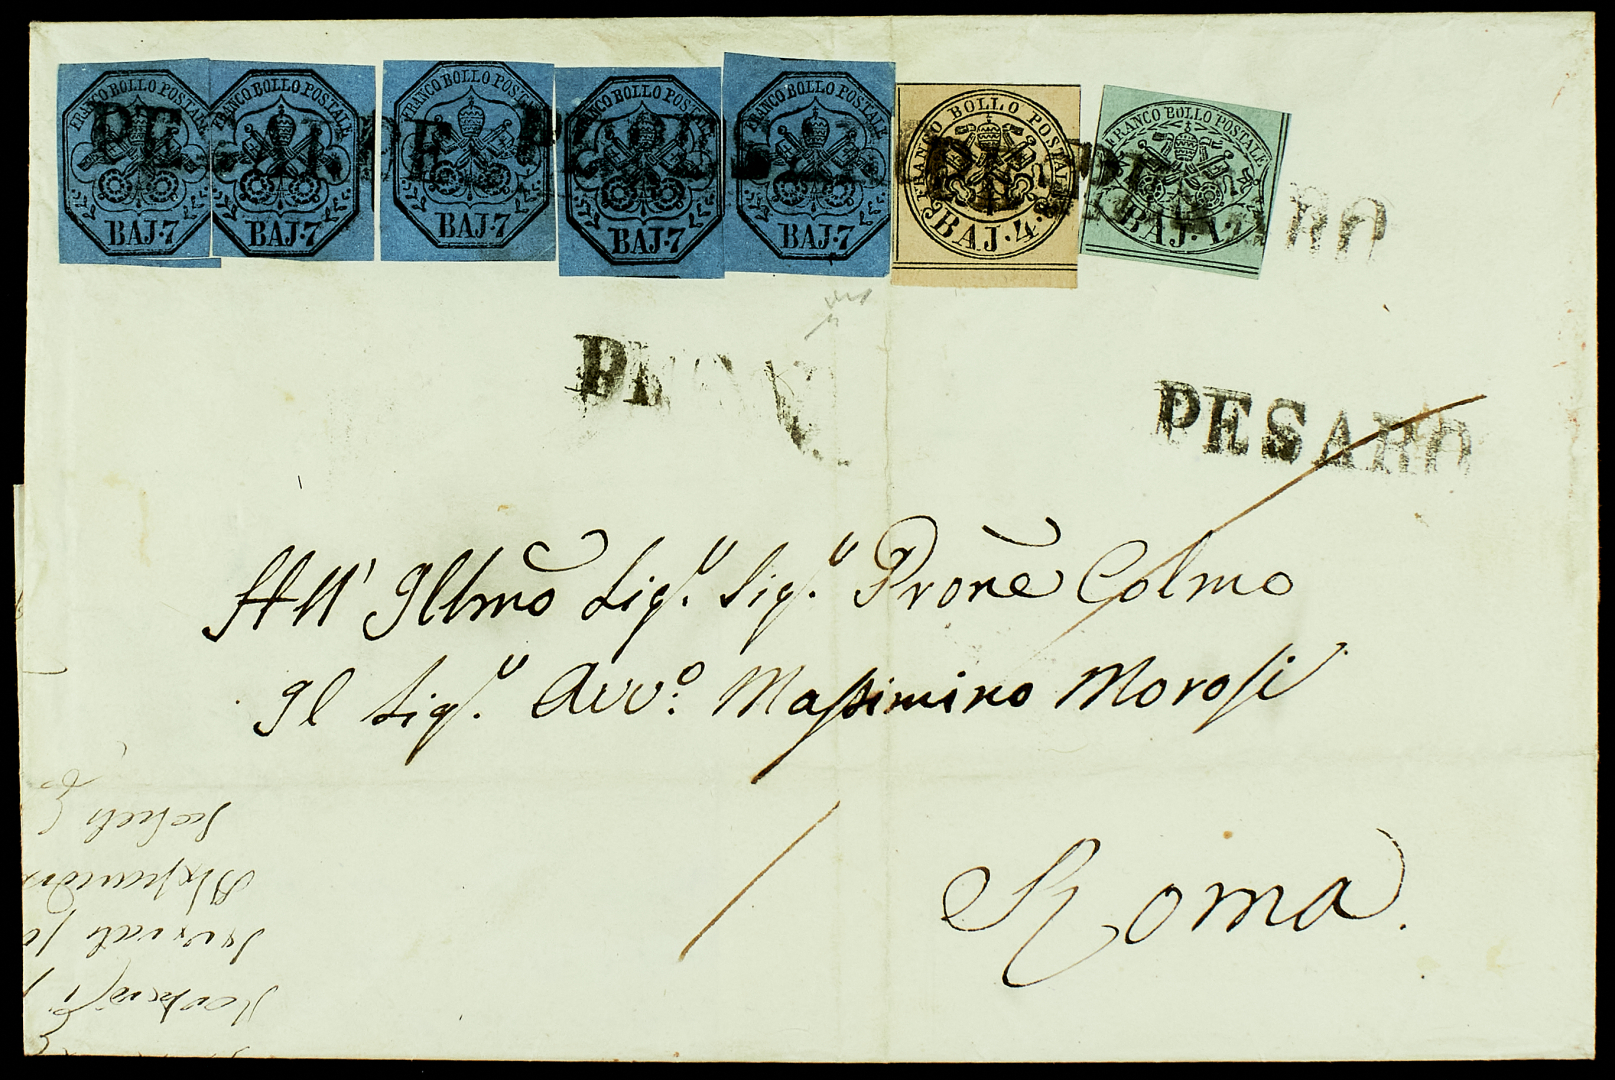 FRANCO BOLLO POSTALE
BAJ·7
FRANCO BOLLO POSTALE
BAJ·7
FRANCO BOLLO POSTALE
BAJ·7
FRANCO BOLLO POSTALE
BAJ·7
FRANCO BOLLO POSTALE
BAJ·7
FRANCO BOLLO POSTALE
BAJ·4·
FRANCO BOLLO POSTALE
BAJ·1·
PESARO
All' Illmo Sigr. Sigr. Prone Colmo
Il Sigr. Avvo. Massimino Morosi
Roma.